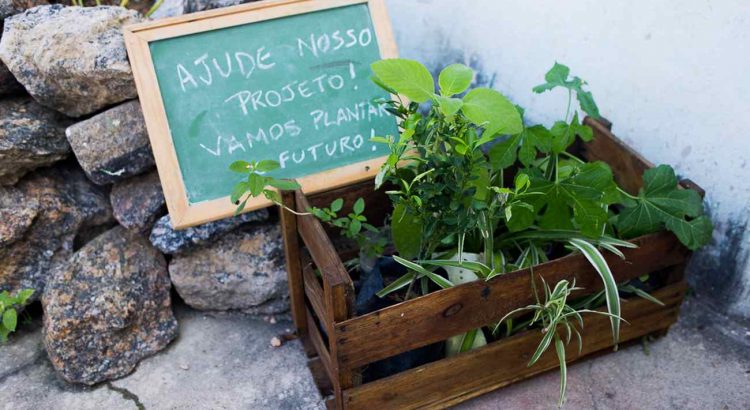 AJUDE NOSSO
PROJETO!
VAMOS PLANTAR
FUTURO!